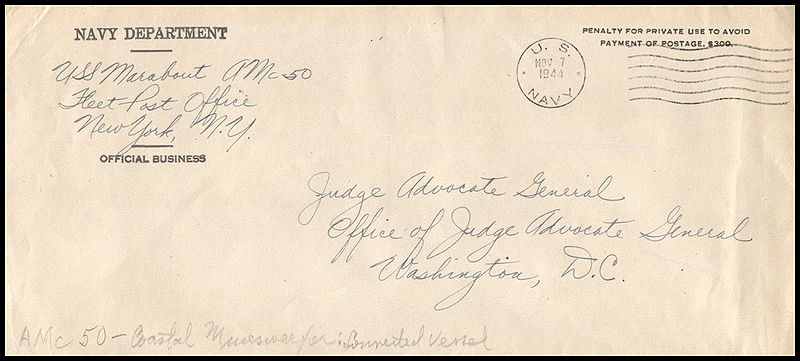 NAVY DEPARTMENT
USS Marabout AMc 50
Fleet Post Office
New York, N.Y.
OFFICIAL BUSINESS
U. S.
NOV 7
1944
NAVY
PENALTY FOR PRIVATE USE TO AVOID
PAYMENT OF POSTAGE, $300.
Judge Advocate General
Office of Judge Advocate General
Washington, D.C.
AMc 50 - Coastal Minesweeper: Converted Vessel